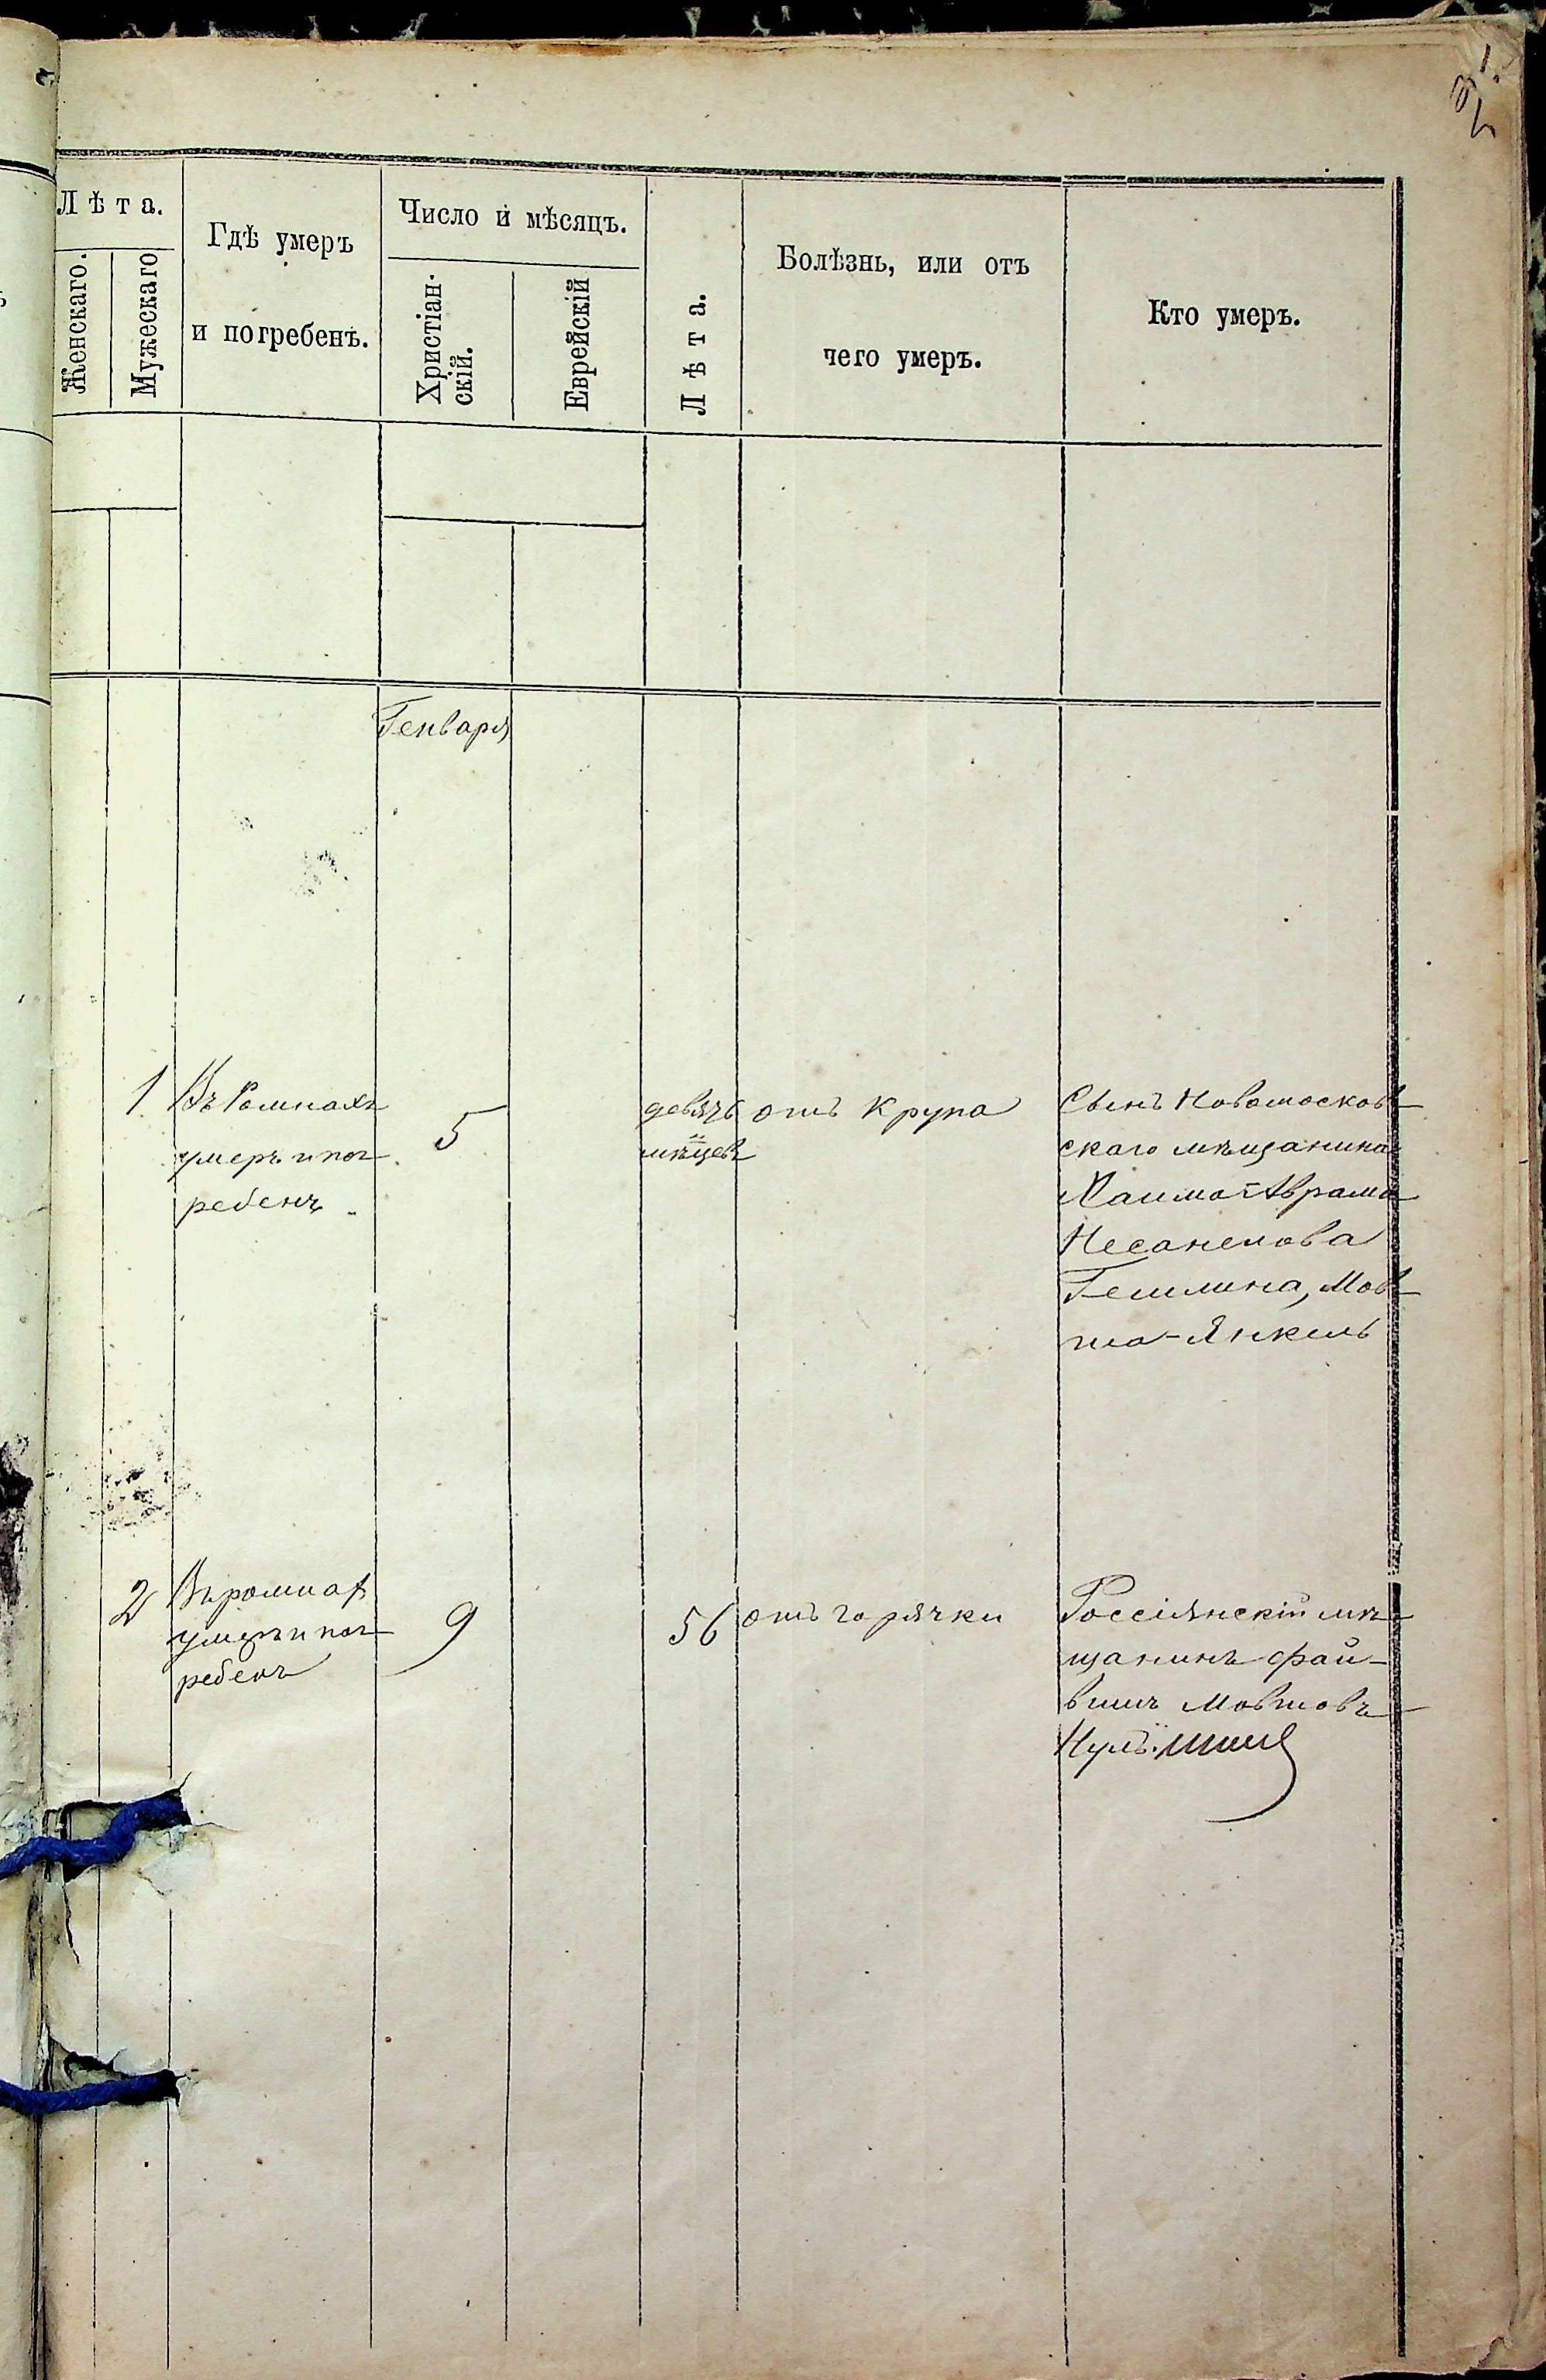 Лѣта.
Женскаго.
Мужескаго
Гдѣ умеръ
и погребенъ.
Число и мѣсяцъ.
Христіан-
скій.
Еврейскій
Лѣта.
Болѣзнь, или отъ
чего умеръ.
Кто умеръ.
Генваря
1
Въ Ромнахъ
умеръ и пог-
ребенъ
5
девять
мѣцевъ
отъ крупа
Сынъ Новомосков-
скаго мѣщанина
Хаима-Аврама
Несанелова
Гешлина, Мов-
ша-Янкель
2
Въ ромнах
умеръ и пог-
ребенъ
9
56
отъ горячки
Россіянскій мѣ-
щанинъ Фай-
вишъ Мовшовъ